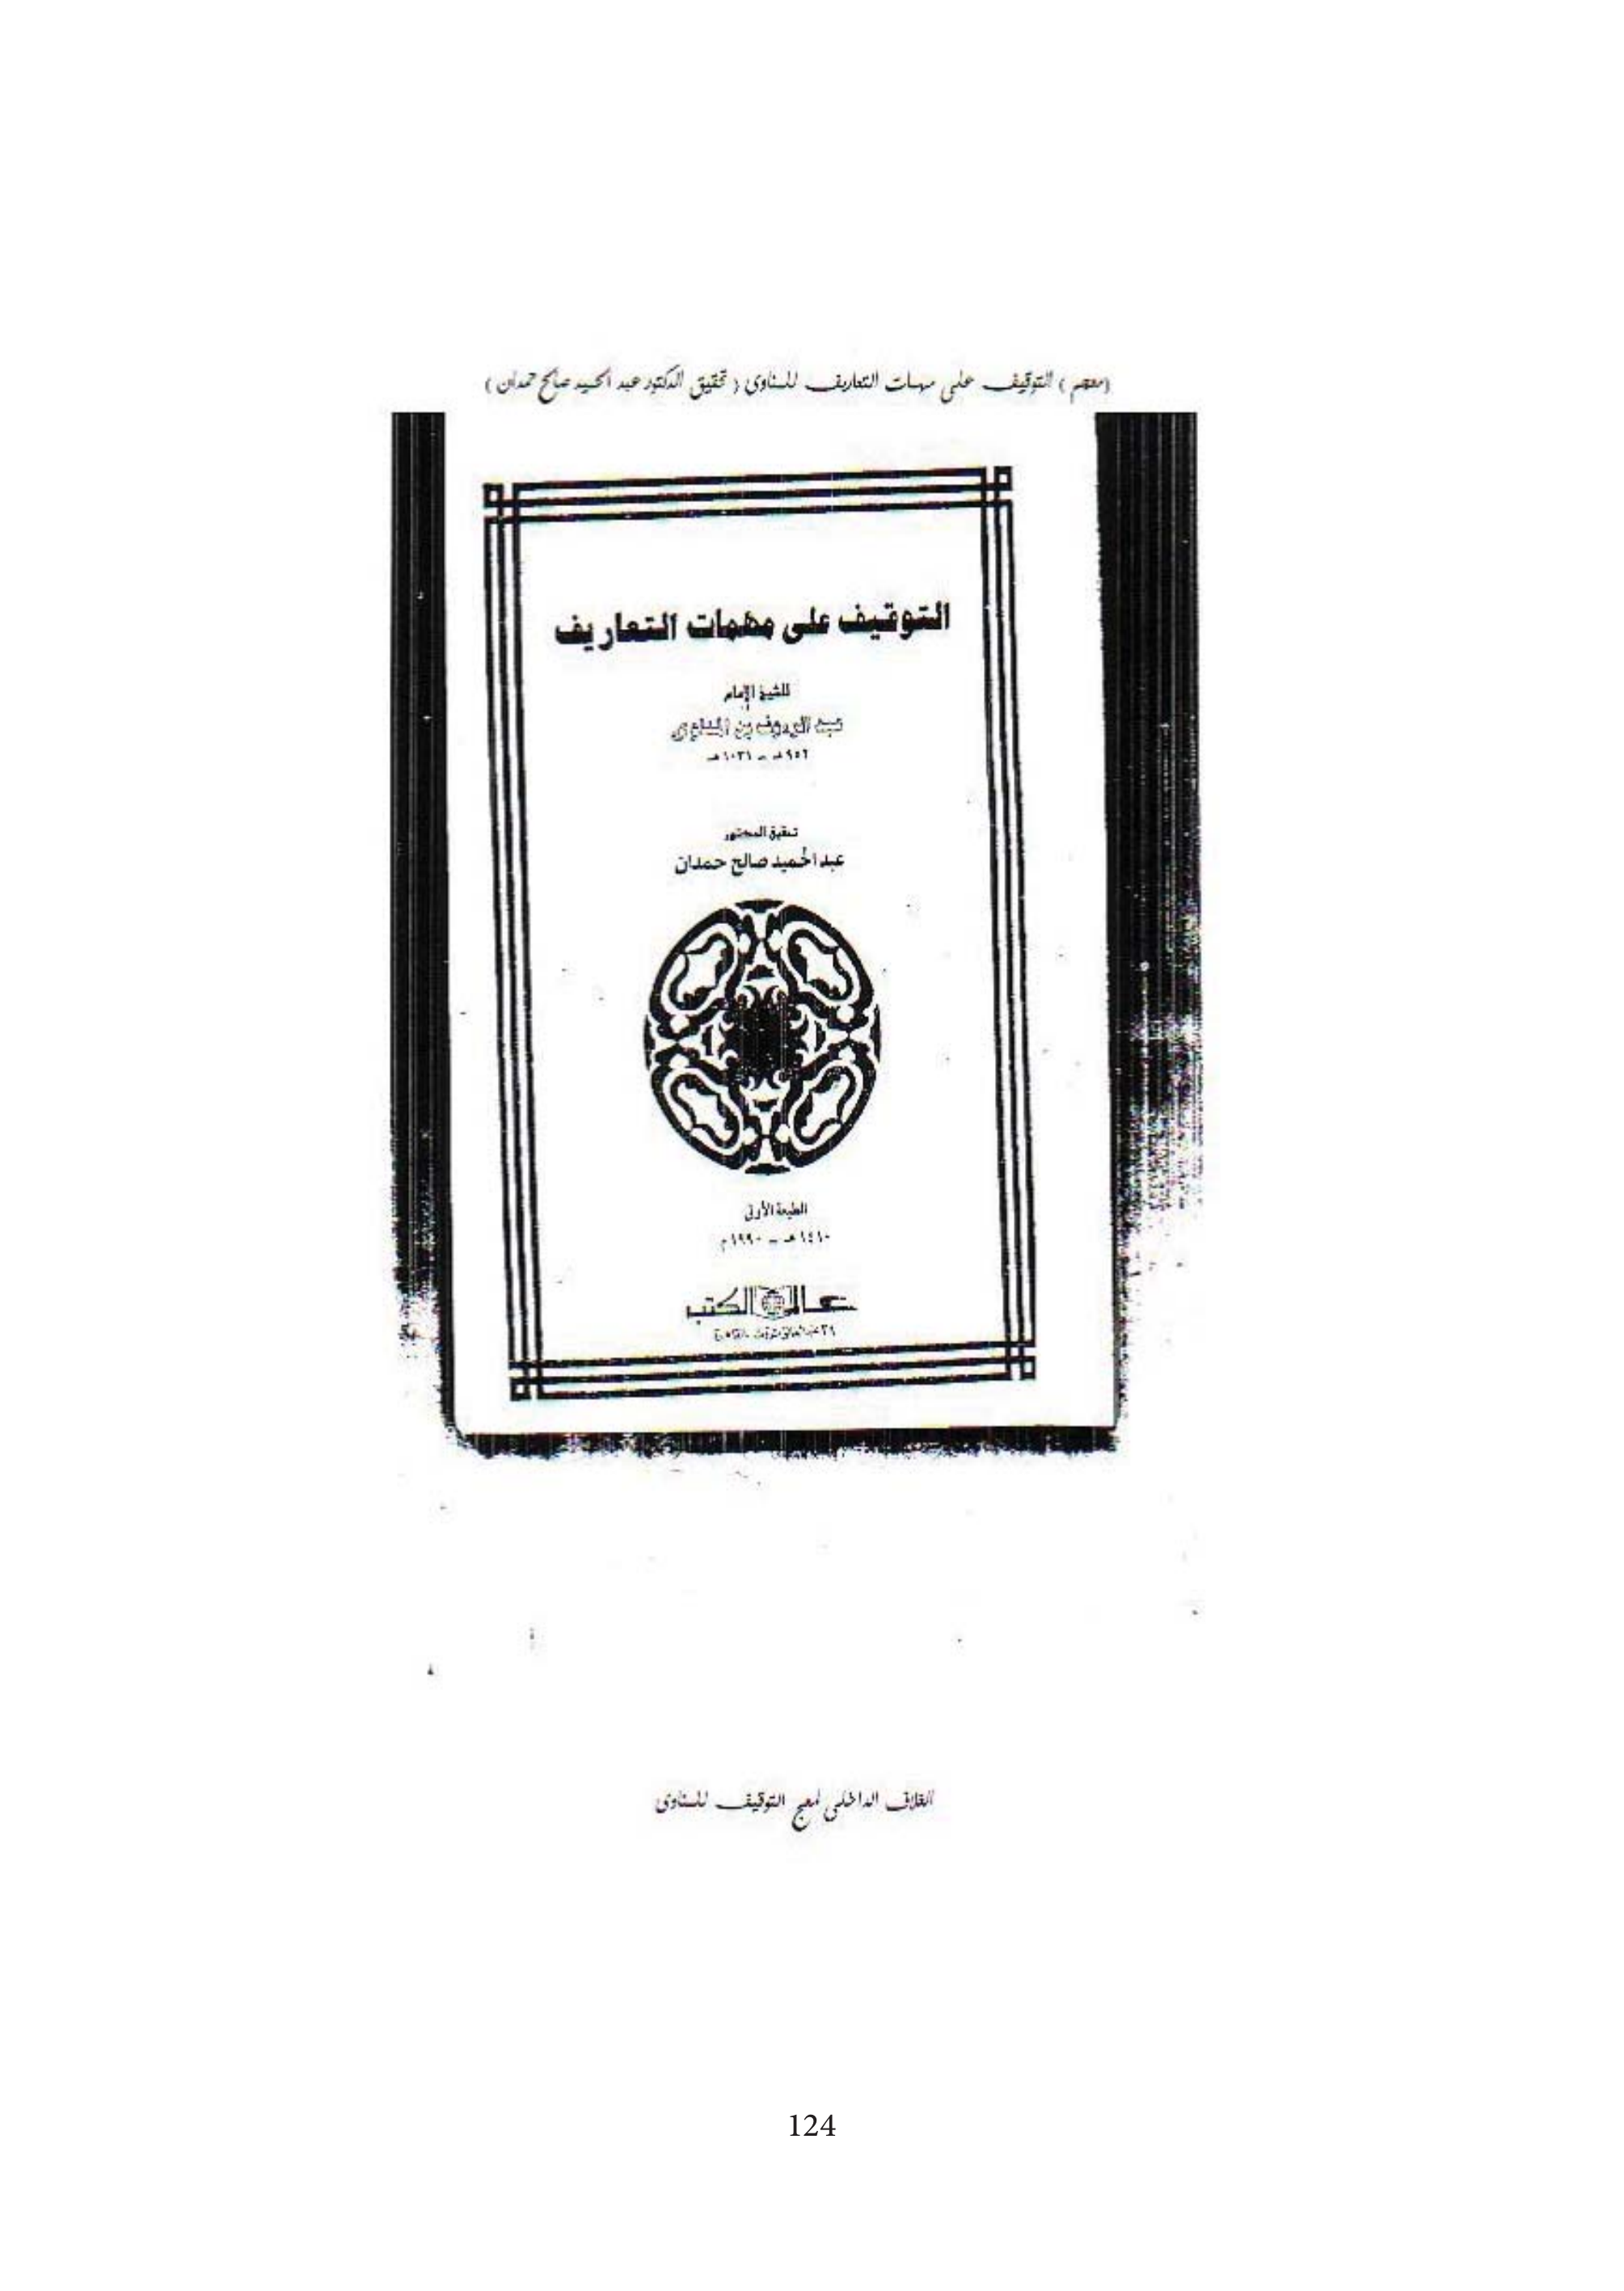 (معجم) التوقيف على مهمات التعاريف للمناوى (تحقيق الدكتور عبد الحميد صالح حمدان)
التوقيف على مهمات التعاريف
للشيخ الإمام
عبد الرءوف بن المناوى
٩٥٢هـ - ١٠٣١هـ
تحقيق الدكتور
عبد الحميد صالح حمدان
الطبعة الأولى
١٤١٠هـ - ١٩٩٠م
عالم الكتب
الغلاف الداخلى لمعجم التوقيف للمناوى
124